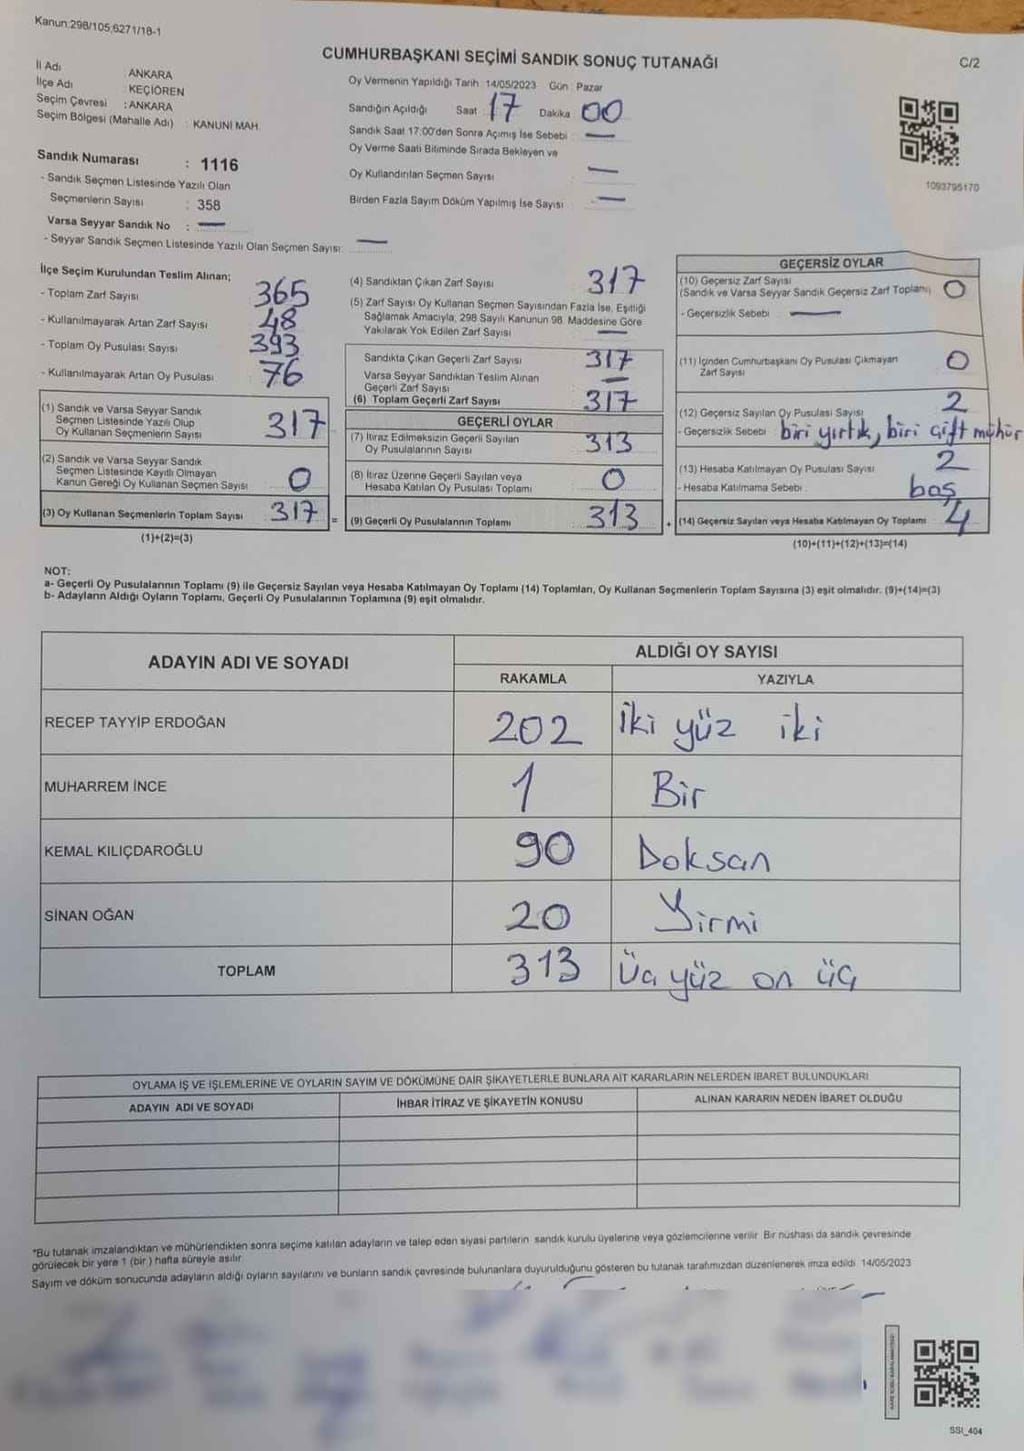 Kanun:298/105,6271/18-1
CUMHURBAŞKANI SEÇİMİ SANDIK SONUÇ TUTANAĞI
C/2
İl Adı : ANKARA
İlçe Adı : KEÇİÖREN
Seçim Çevresi : ANKARA
Seçim Bölgesi (Mahalle Adı) : KANUNİ MAH.
Sandık Numarası : 1116
- Sandık Seçmen Listesinde Yazılı Olan
Seçmenlerin Sayısı : 358
Varsa Seyyar Sandık No : —
- Seyyar Sandık Seçmen Listesinde Yazılı Olan Seçmen Sayısı: —
Oy Vermenin Yapıldığı Tarih : 14/05/2023 Gün : Pazar
Sandığın Açıldığı Saat 17 Dakika 00
Sandık Saat 17:00'den Sonra Açılmış İse Sebebi : —
Oy Verme Saati Bitiminde Sırada Bekleyen ve
Oy Kullandırılan Seçmen Sayısı : —
Birden Fazla Sayım Döküm Yapılmış İse Sayısı : —
1093795170
İlçe Seçim Kurulundan Teslim Alınan;
- Toplam Zarf Sayısı 365
- Kullanılmayarak Artan Zarf Sayısı 48
- Toplam Oy Pusulası Sayısı 393
- Kullanılmayarak Artan Oy Pusulası 76
(1) Sandık ve Varsa Seyyar Sandık
Seçmen Listesinde Yazılı Olup
Oy Kullanan Seçmenlerin Sayısı 317
(2) Sandık ve Varsa Seyyar Sandık
Seçmen Listesinde Kayıtlı Olmayan
Kanun Gereği Oy Kullanan Seçmen Sayısı 0
(3) Oy Kullanan Seçmenlerin Toplam Sayısı 317 =
(1)+(2)=(3)
(4) Sandıktan Çıkan Zarf Sayısı 317
(5) Zarf Sayısı Oy Kullanan Seçmen Sayısından Fazla İse, Eşitliği
Sağlamak Amacıyla, 298 Sayılı Kanunun 98. Maddesine Göre
Yakılarak Yok Edilen Zarf Sayısı —
Sandıkta Çıkan Geçerli Zarf Sayısı 317
Varsa Seyyar Sandıktan Teslim Alınan
Geçerli Zarf Sayısı —
(6) Toplam Geçerli Zarf Sayısı 317
GEÇERLİ OYLAR
(7) İtiraz Edilmeksizin Geçerli Sayılan
Oy Pusulalarının Sayısı 313
(8) İtiraz Üzerine Geçerli Sayılan veya
Hesaba Katılan Oy Pusulası Toplamı 0
(9) Geçerli Oy Pusulalarının Toplamı 313 +
GEÇERSİZ OYLAR
(10) Geçersiz Zarf Sayısı
(Sandık ve Varsa Seyyar Sandık Geçersiz Zarf Toplamı) 0
- Geçersizlik Sebebi : —
(11) İçinden Cumhurbaşkanı Oy Pusulası Çıkmayan
Zarf Sayısı 0
(12) Geçersiz Sayılan Oy Pusulası Sayısı 2
- Geçersizlik Sebebi : biri yırtık, biri çift mühür
(13) Hesaba Katılmayan Oy Pusulası Sayısı 2
- Hesaba Katılmama Sebebi : boş
(14) Geçersiz Sayılan veya Hesaba Katılmayan Oy Toplamı 4
(10)+(11)+(12)+(13)=(14)
NOT:
a- Geçerli Oy Pusulalarının Toplamı (9) ile Geçersiz Sayılan veya Hesaba Katılmayan Oy Toplamı (14) Toplamları, Oy Kullanan Seçmenlerin Toplam Sayısına (3) eşit olmalıdır. (9)+(14)=(3)
b- Adayların Aldığı Oyların Toplamı, Geçerli Oy Pusulalarının Toplamına (9) eşit olmalıdır.
ADAYIN ADI VE SOYADI
ALDIĞI OY SAYISI
RAKAMLA YAZIYLA
RECEP TAYYİP ERDOĞAN 202 İki yüz iki
MUHARREM İNCE 1 Bir
KEMAL KILIÇDAROĞLU 90 Doksan
SİNAN OĞAN 20 Yirmi
TOPLAM 313 Üç yüz on üç
OYLAMA İŞ VE İŞLEMLERİNE VE OYLARIN SAYIM VE DÖKÜMÜNE DAİR ŞİKAYETLERLE BUNLARA AİT KARARLARIN NELERDEN İBARET BULUNDUKLARI
ADAYIN ADI VE SOYADI İHBAR İTİRAZ VE ŞİKAYETİN KONUSU ALINAN KARARIN NEDEN İBARET OLDUĞU
*Bu tutanak imzalandıktan ve mühürlendikten sonra seçime katılan adayların ve talep eden siyasi partilerin sandık kurulu üyelerine veya gözlemcilerine verilir. Bir nüshası da sandık çevresinde
görülecek bir yere 1 (bir) hafta süreyle asılır.
Sayım ve döküm sonucunda adayların aldığı oyların sayılarını ve bunların sandık çevresinde bulunanlara duyurulduğunu gösteren bu tutanak tarafımızdan düzenlenerek imza edildi. 14/05/2023
SSI_404